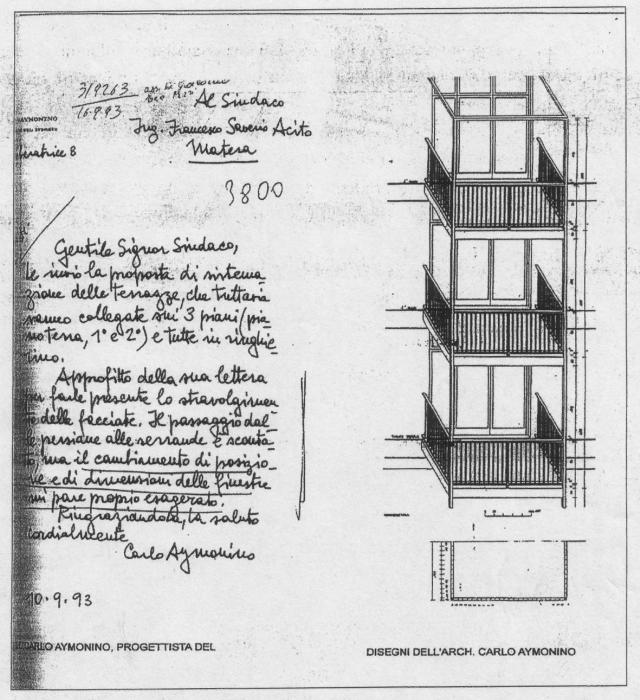 3/9263
16.9.93
Al Sindaco
AYMONINO
Ing. Francesco Saverio Acito
Matera
8
3800
Gentile Signor Sindaco,
le invio la proposta di sistema-
zione delle terrazze, che tuttavia
vanno collegate sui 3 piani (pia-
no terra, 1° e 2°) e tutte in ringhie-
rino.
Approfitto della sua lettera
per farle presente lo stravolgimen-
to delle facciate. Il passaggio dal-
le persiane alle serrande è sconta-
to, ma il cambiamento di posizio-
ne e di dimensioni delle finestre
mi pare proprio esagerato.
Ringraziandola, la saluto
cordialmente
Carlo Aymonino
10.9.93
CARLO AYMONINO, PROGETTISTA DEL
DISEGNI DELL'ARCH. CARLO AYMONINO